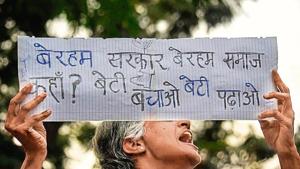 बेरहम सरकार बेरहम समाज
कहाँ? बेटी बचाओ बेटी पढ़ाओ